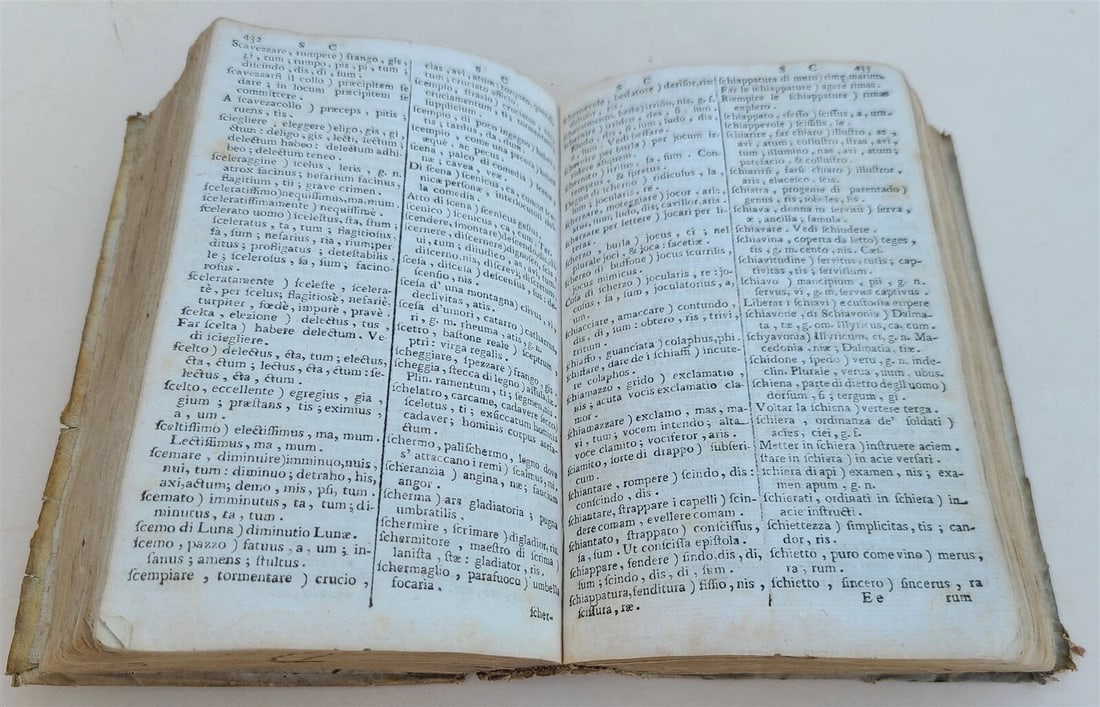 432
S C
Scavezzare, rompere) frango, gis;
gi, tum; rumpo, pis, pi, tum;
diſcindo, dis, di, ſum.
ſcavezzarſi il collo) præcipitem ſe
dare; in locum præcipitem ſe
committere.
A ſcavezacollo) præceps, pitis;
ruens, tis.
ſciegliere, eleggere) eligo, gis, gi,
ctum: deligo, gis, lecti, lectum;
delectum habeo: delectum adhi-
beo; delectum teneo.
ſceleraggine) ſcelus, leris, g. n.
atrox facinus; nefarium facinus,
flagitium, tii; grave crimen.
ſceleratiſſimo) nequiſſimus, ma, mum.
ſceleratiſſimamente) nequiſſimè.
ſcelerato uomo) ſceleſtus, ſta, ſtum;
ſceleratus, ta, tum; flagitioſus,
ſa, ſum; nefarius, ria, rium; per
ditus; profligatus; deteſtabilis,
le; sceleroſus, ſa, ſum; facino-
roſus.
ſceleratamente) ſceleſte, ſcelera-
tè, per ſcelus; flagitiosè, nefariè,
turpiter, fœdè, impurè, pravè.
ſcelta, elezione) delectus, tus,
Far ſcelta) habere delectum. Ve-
di ſciegliere.
ſcelto) delectus, cta, tum; electus,
cta, ctum; lectus, cta, ctum: ſe-
lectus, cta, ctum.
ſcelto, eccellente) egregius, gia,
gium; præſtans, tis; eximius,
a, um.
ſceltiſſimo) electiſſimus, ma, mum.
Lectiſſimus, ma, mum.
ſcemare, diminuire) imminuo, nuis,
nui, tum: diminuo; detraho, his,
axi, actum; demo, mis, pſi, tum.
ſcemato) imminutus, ta, tum; di-
minutus, ta, tum.
ſcemo di Luna) diminutio Lunæ.
ſcemo, pazzo) fatuus, a, um; in-
ſanus; amens; ſtultus.
ſcempiare, tormentare) crucio,
S C
cias, avi, atum;
tum; cruciatu afficio.
ſcempio,
cruciamentum,
ſupplicium,
ſcempio, di poco ingegno)
tis; tardus, da, dum.
ſcempio, come una pecora)
æquè, ac pecus.
ſcena, palco di comedia) ſcena,
næ; cavea, veæ.
Di ſcena) ſcenicus, ca, cum; ſce-
nicæ perſonæ, interlocutori del
la comedia.
Atto di ſcena) ſcenicus geſtus,
ſcenico) ſcenicus, ca, cum.
ſcendere, ſmontare) deſcendo,
ſcernere, diſcernere) judico, as, avi,
ui, tum;
diſcerno, nis, diſcrevi,
ſceſa, diſceſa) deſcenſus, ſus;
ſcenſio, nis.
ſceſa d'una montagna) clivus, vi;
declivitas, atis.
ſceſa d'umori, catarro) catharrus,
ri, g. m. rheuma, atis, g. n.
ſcetro, baſtone reale) ſceptrum,
ptri: virga regalis.
ſcheggiare, ſpezzare) frango, gis.
ſcheggia, ſtecca di legno) aſſula, læ.
Plin. ramentum, ti; ſegmen, nis.
ſchelatro, carcame, cadavere ſecco)
ſceletus, ti; exſiccatum hominis
cadaver; hominis corpus arefa-
ctum.
ſchermo, paliſchermo, legno dove
s' attaccano i remi) ſcalmus, mi.
ſcheranzia) angina, næ; faucium
angor.
ſcherma) ars gladiatoria; pugna
umbratilis.
ſchermire, ſcrimare) digladior, ris.
ſchermitore, maeſtro di ſcrima)
laniſta, ſtæ: gladiator, ris.
ſchermaglio, parafuoco) umbella
focaria.
ſcher-
S C
beffatore) deriſor, ris:
beffa) irriſio, nis, g. f.
irrideo, des, ſi, ſum.
ſi, ſum; ludo, dis,
Vedi beffare.
ſchernire per burla) per jocum ir-
ridere aliquem.
ſchernito) irriſus, ſa, ſum. Con-
temptus, & ſpretus.
Degno di ſcherno) ridiculus, la,
lum; jocularis, re.
ſcherzare, motteggiare) jocor, aris,
atus, ſum; ludo, dis; cavillor, aris.
ſcherzare per lettere) jocari per li-
teras.
ſcherzo, burla) jocus, ci; nel
plurale joci, & joca: facetiæ.
ſcherzo di buffone) jocus ſcurrilis,
jocus mimicus.
Coſa di ſcherzo) jocularis, re: jo-
coſus, ſa, ſum, joculatorius, a,
um.
ſchiacciare, amaccare) contundo,
dis, di, ſum: obtero, ris, trivi,
tritum.
ſchiaffo, guanciata) colaphus, phi.
ſchiaffare, dare de i ſchiaffi) incute-
re colaphos.
ſchiamazzo, grido) exclamatio,
nis; acuta vocis exclamatio cla-
mor.
ſchiamazzare) exclamo, mas, ma-
vi, tum; vocem intendo; alta
voce clamito; vociferor, aris.
ſciamito, ſorte di drappo) ſubſeri-
cum.
ſchiantare, rompere) ſcindo, dis:
conſcindo, dis.
ſchiantare, ſtrappare i capelli) ſcin-
dere comam, evellere comam.
ſchiantato, ſtrappato) conſciſſus,
ſa, ſum. Ut conſciſſa epiſtola.
ſchiappare, fendere) findo, dis, di,
ſum; ſcindo, dis, di, ſum.
ſchiappatura, fenditura) fiſſio, nis,
ſciſſura, ræ.
S C 433
ſchiappatura di muro) rimæ, marum.
Far le ſchiappature) agere rimas.
Riempire le ſchiappature) rimas
explero.
ſchiappato, feſſo) ſciſſus, a, um.
ſchiappevole) ſciſſilis, le.
ſchiarire, far chiaro) illuſtro, as,
avi, atum; colluſtro, ſtras, avi,
tum; illumino, nas, avi, atum;
patefacio, & colluſtro.
ſchiarirſi, farſi chiaro) illuſtror,
aris; eluceſco, ſcis.
ſchiatta, progenie di parentado)
genus, ris; ſoboles, lis.
ſchiava, donna in ſervitù) ſerva,
æ, ancilla; famula.
ſchiavare. Vedi ſchiudere.
ſchiavina, coperta da letto) teges,
tis, g. m. cento, nis. Cæſ.
ſchiavitudine) ſervitus, tutis; cap-
tivitas, tis; ſervitium.
ſchiavo) mancipium, pii, g. n.
ſervus, vi, g. m. ſervus captivus.
Liberar i ſchiavi) e cuſtodia eripere
ſchiavone, di Schiavonia) Dalma-
ta, tæ, g. om. Illyricus, ca, cum.
ſchyavonia) Illyricum, ci, g. n. Ma-
cedonia, niæ; Dalmatia, tiæ.
ſchidone, ſpedo) veru, g. n. inde-
clin. Plurale, verua, uum, ubus.
ſchiena, parte di dietro degl'uomo)
dorſum, ſi; tergum, gi.
Voltar la ſchiena) vertere terga.
ſchiera, ordinanza de' ſoldati)
acies, ciei, g. f.
Metter in ſchiera) inſtruere aciem.
ſtare in ſchiera) in acie verſari.
ſchiera di api) examen, nis; exa-
men apum, g. n.
ſchierati, ordinati in ſchiera) in
acie inſtructi.
ſchiettezza) ſimplicitas, tis; can-
dor, ris.
ſchietto, puro come vino) merus;
ra, rum.
ſchietto, ſincero) ſincerus, ra
Ee rum